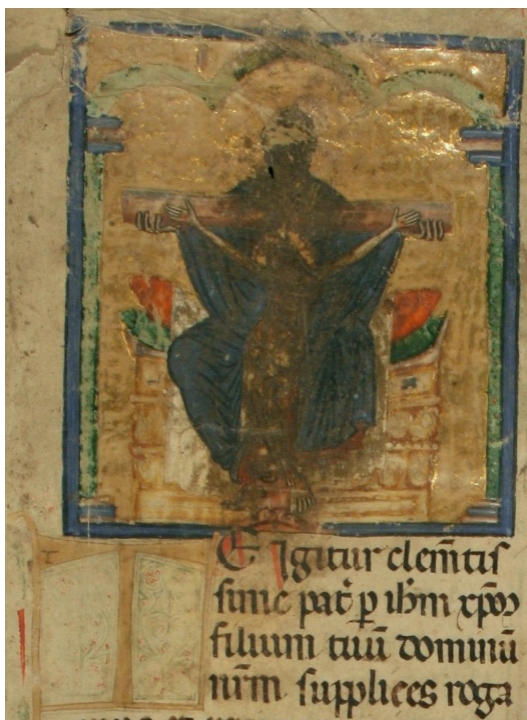 E Igitur clem̄tis
sime pat̄ p ih̄m xp̄m
filium tuū dominū
nr̄m supplices roga